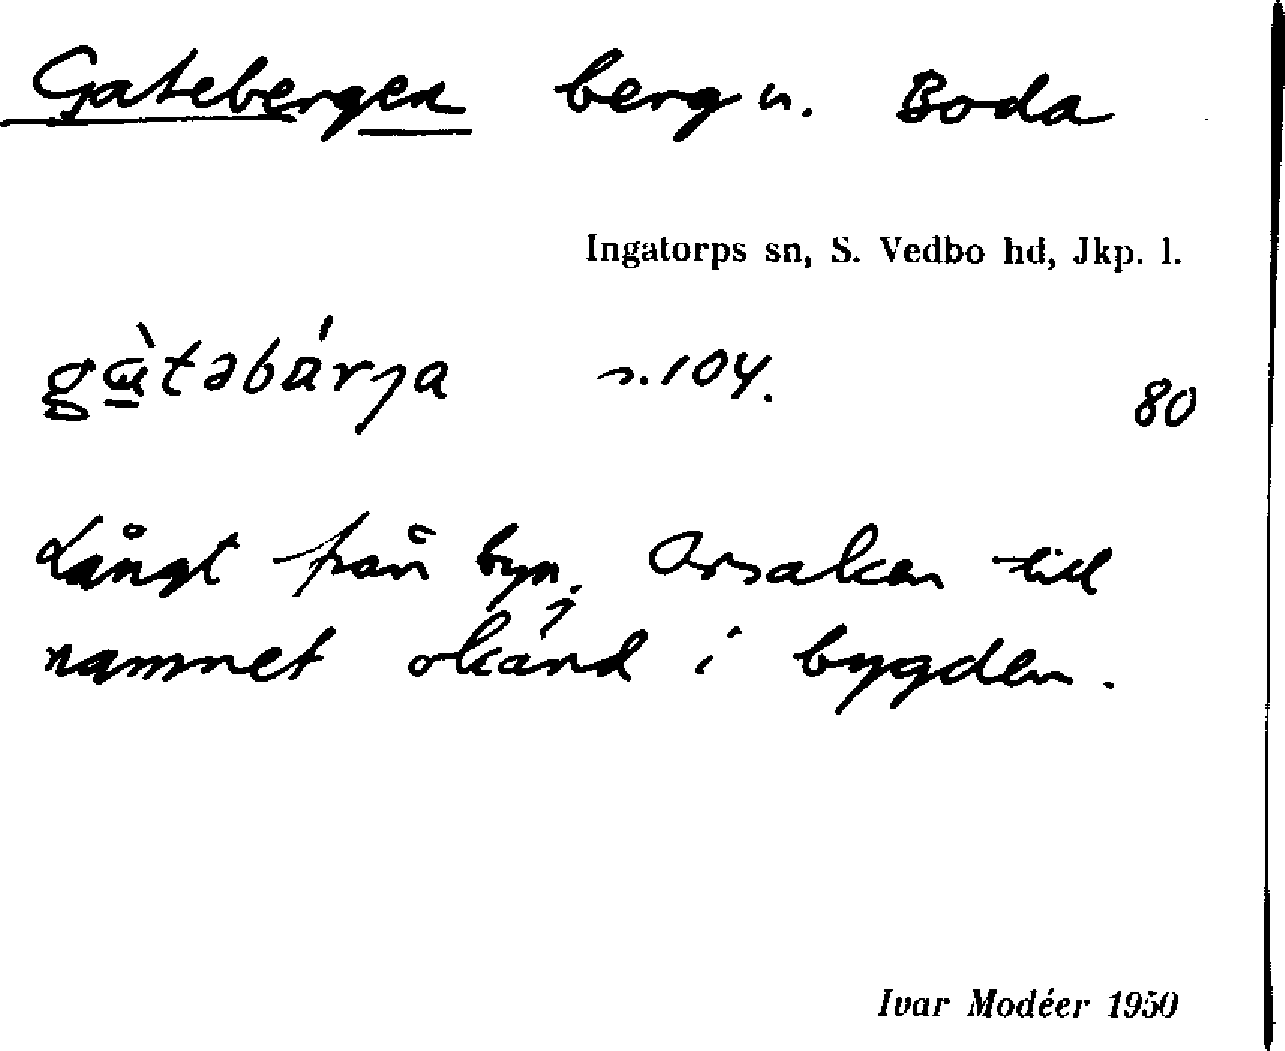 Gatebergen berg n. Boda
Ingatorps sn, S. Vedbo hd, Jkp. l.
s. 104.
80
Långt från byn. Orsaken till
namnet okänd i bygden.
Ivar Modéer 1950